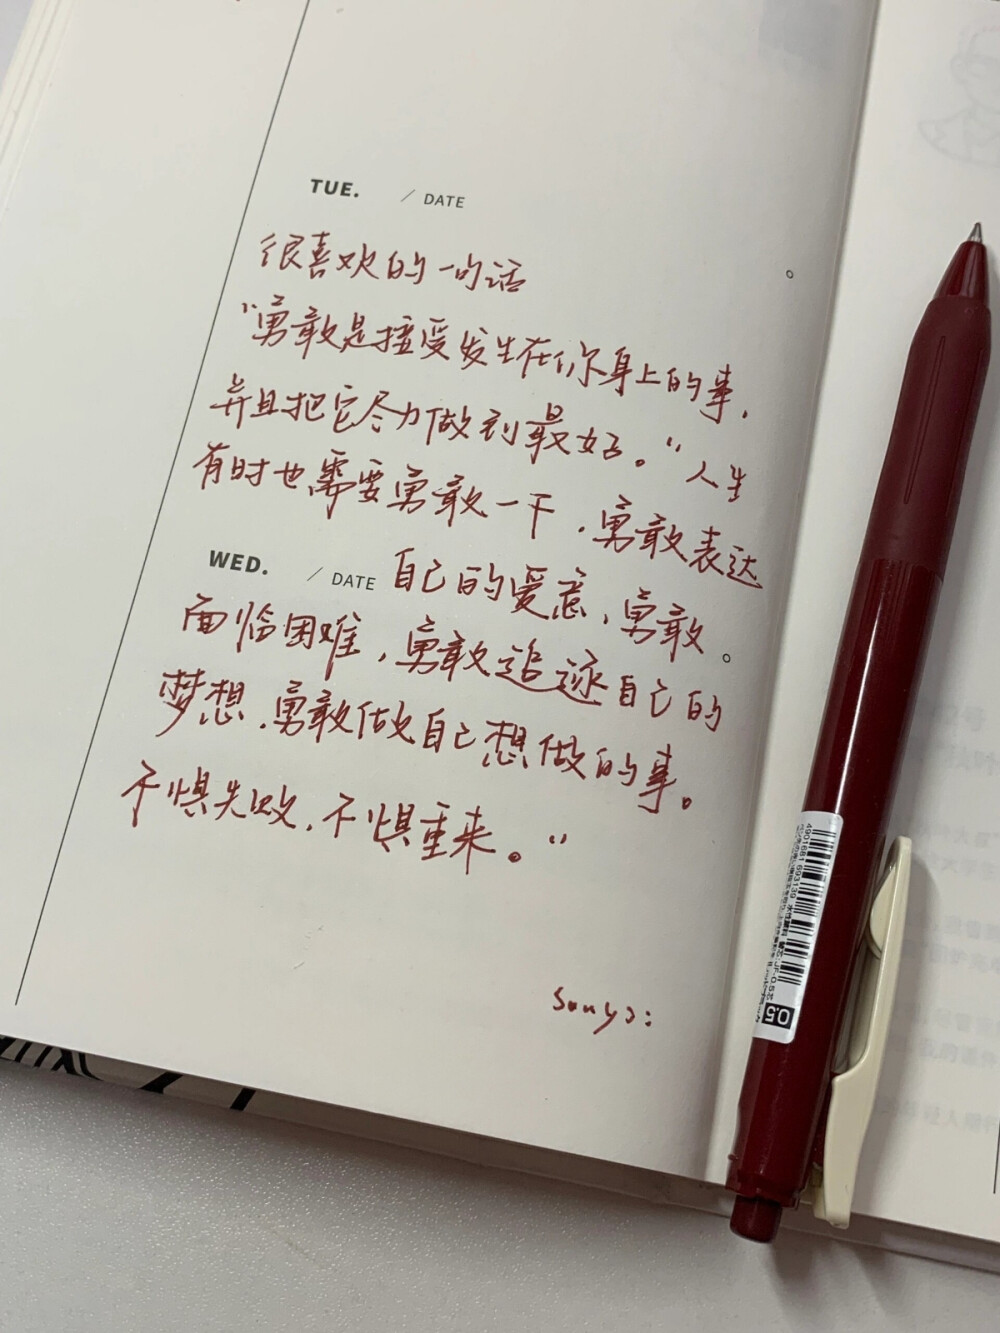 TUE. / DATE
很喜欢的一句话
“勇敢是接受发生在你身上的事,
并且把它尽力做到最好。”人生
有时也需要勇敢一下,勇敢表达
WED. / DATE 自己的爱意,勇敢
面临困难,勇敢追逐自己的
梦想,勇敢做自己想做的事。
不惧失败,不惧重来。”
4901681 693139
0.5